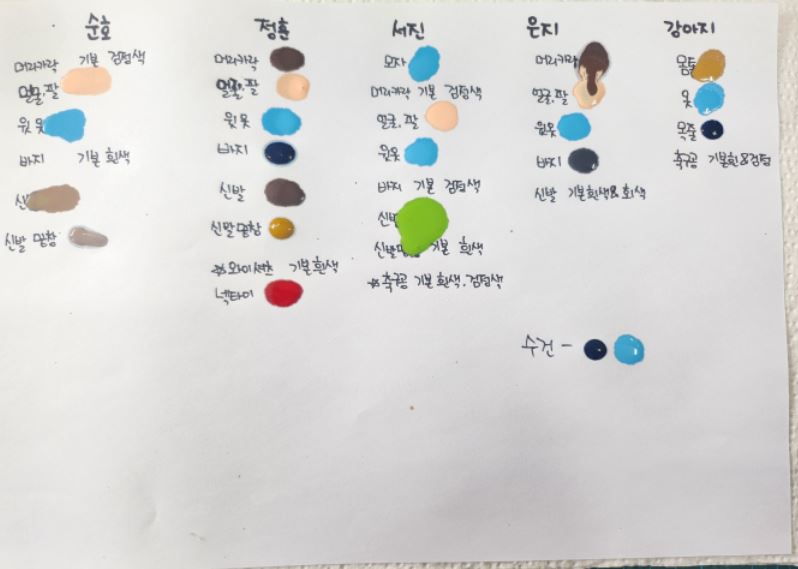 순호
머리카락 기본 검정색
얼굴,팔
윗옷
바지 기본 흰색
신
신발 밑창
정훈
머리카락
얼굴,팔
윗옷
바지
신발
신발 밑창
※와이셔츠 기본 흰색
넥타이
서진
모자
머리카락 기본 검정색
얼굴,팔
윗옷
바지 기본 검정색
신발
신발 기본 흰색
※축구공 기본 흰색.검정색
은지
머리카락
얼굴,팔
윗옷
바지
신발 기본흰색& 회색
강아지
몸통
옷
목줄
축구공 기본흰&검정
수건 -